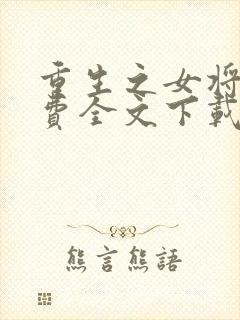 重生之女将
費全文下載
熊言熊語